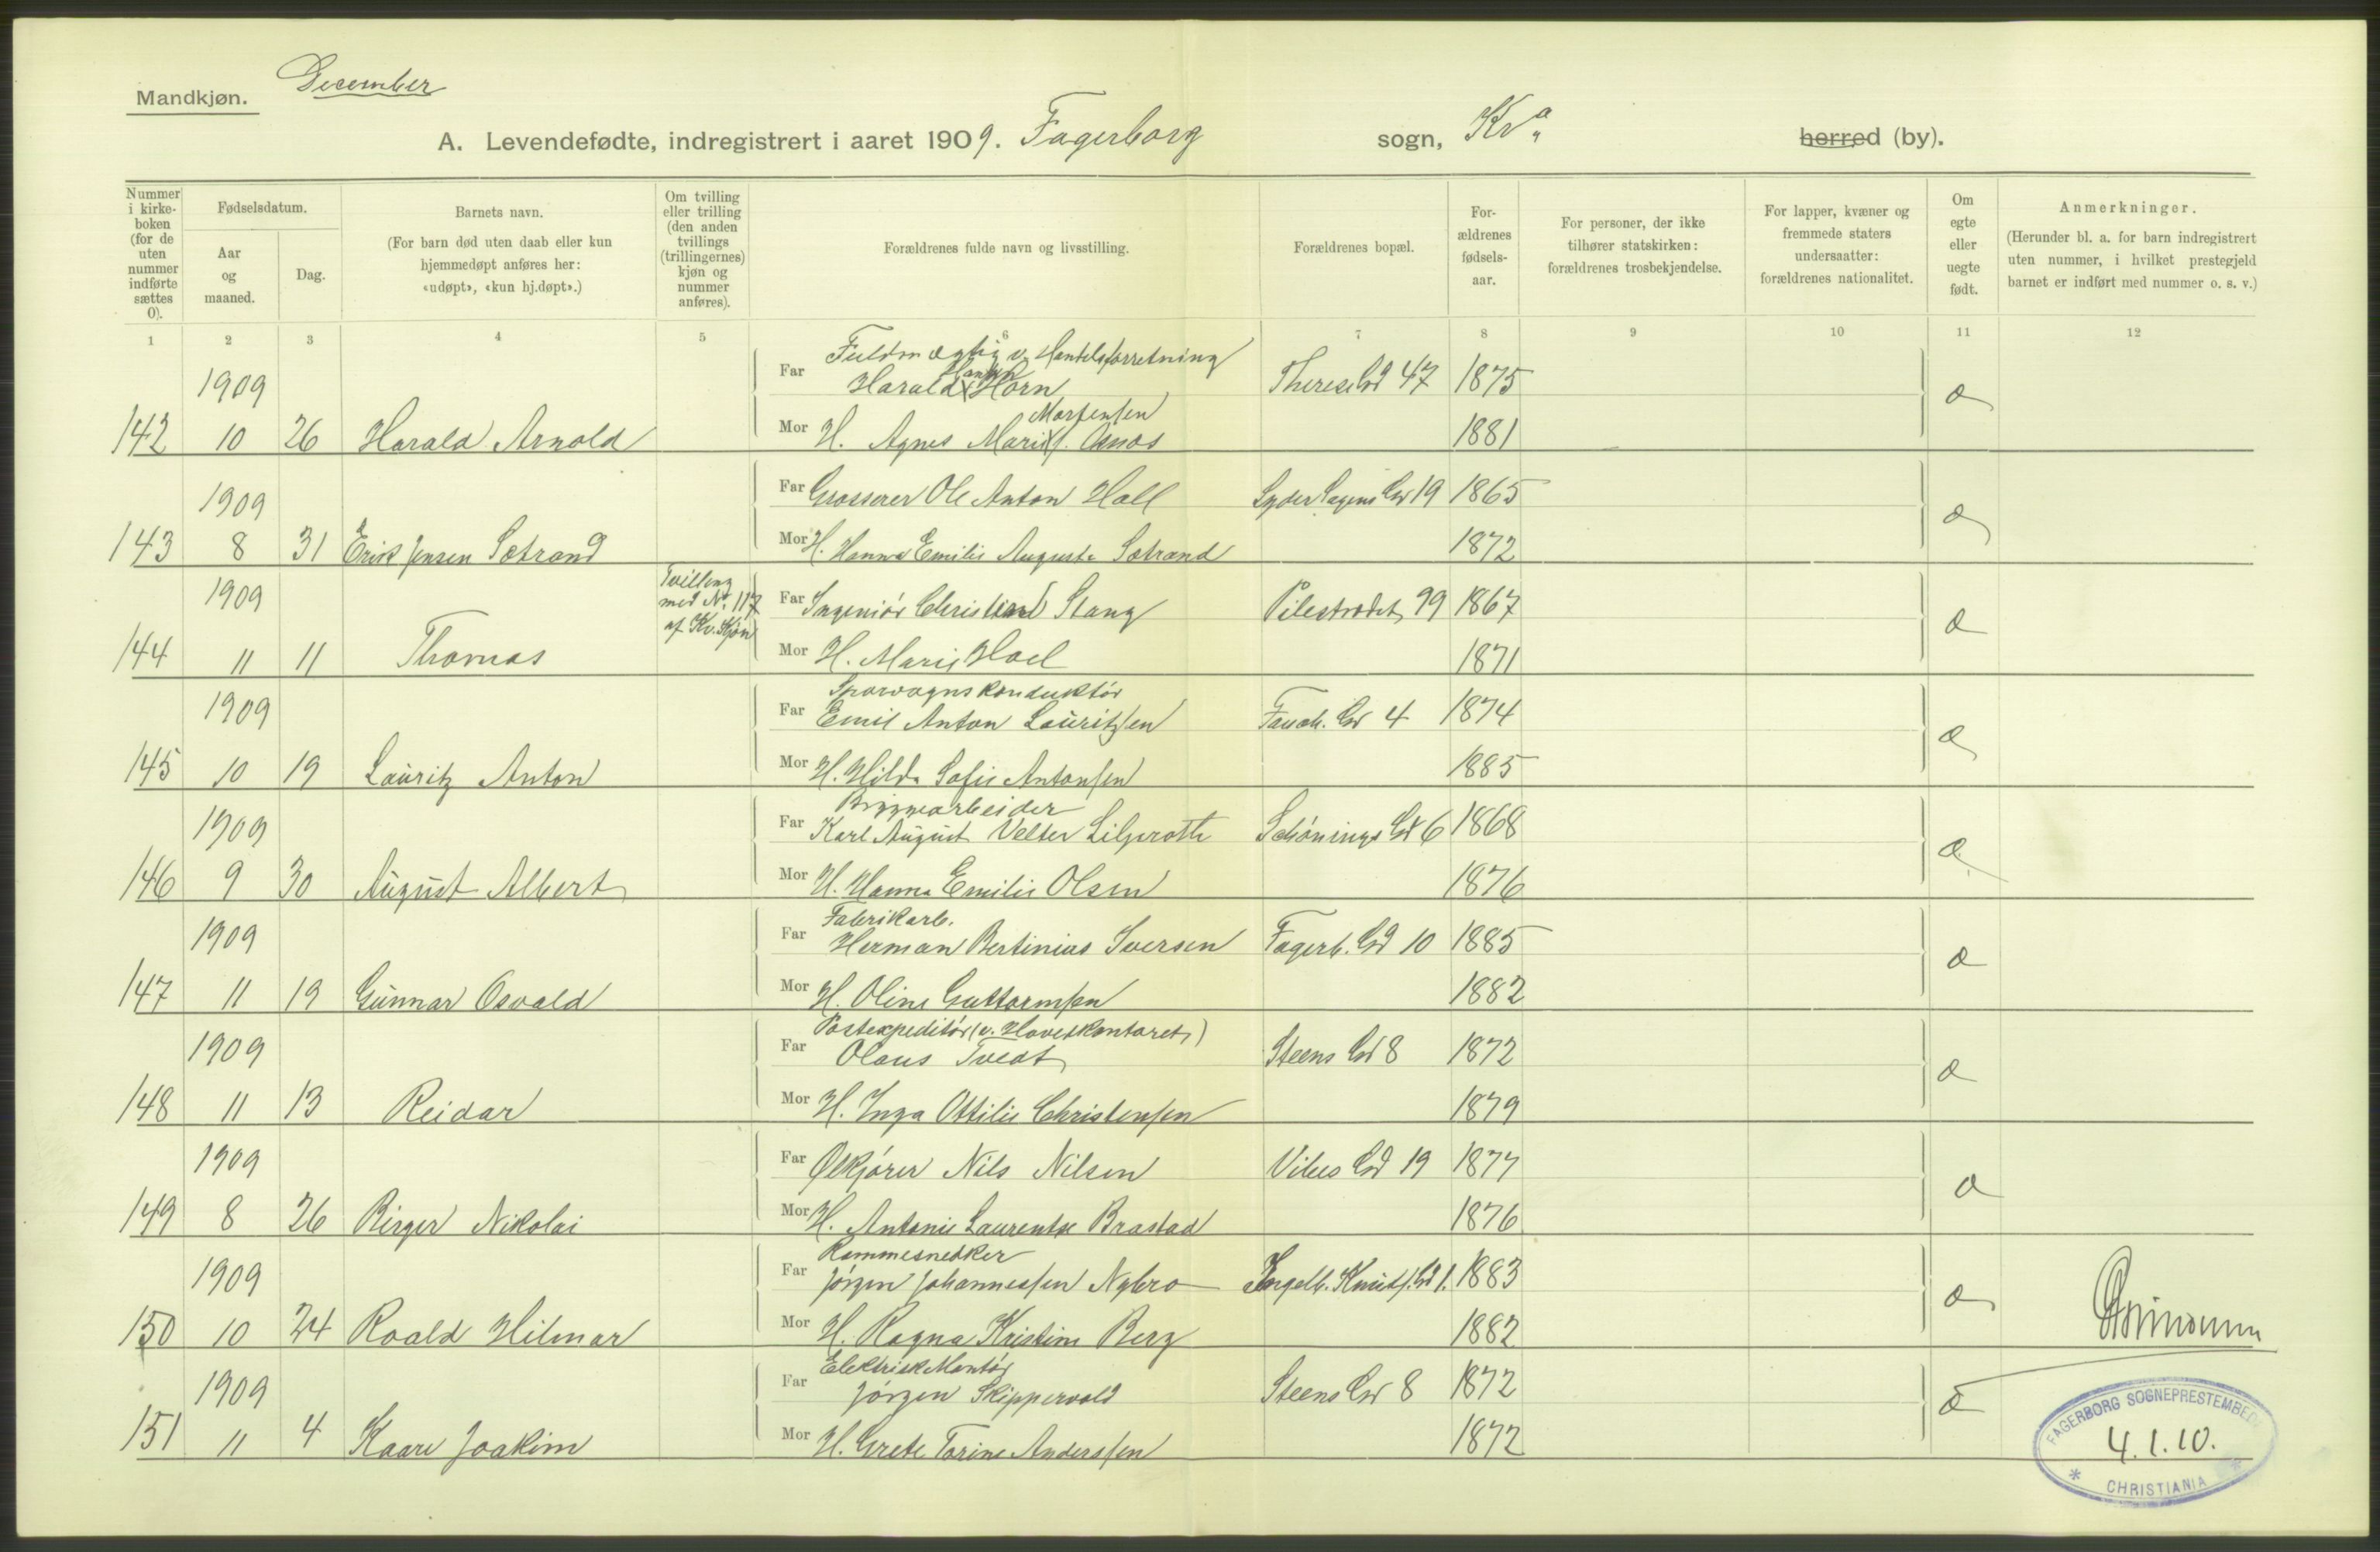 Mandkjøn. December
A. Levendefødte, indregistrert i aaret 1909. Fagerborg sogn, Kr.a herred (by).
Nummer i kirke-boken (for de uten nummer indførte sættes 0).
Fødselsdatum.
Aar og maaned.
Dag.
Barnets navn.
(For barn død uten daab eller kun hjemmedøpt anføres her: «udøpt», «kun hj.døpt».)
Om tvilling eller trilling (den anden tvillings (trillingernes) kjøn og nummer anføres).
Forældrenes fulde navn og livsstilling.
Forældrenes bopæl.
For-ældrenes fødsels-aar.
For personer, der ikke tilhører statskirken: forældrenes trosbekjendelse.
For lapper, kvæner og fremmede staters undersaatter: forældrenes nationalitet.
Om egte eller uegte født.
Anmerkninger.
(Herunder bl. a. for barn indregistrert uten nummer, i hvilket prestegjeld barnet er indført med nummer o. s. v.)
1 2 3 4 5 6 7 8 9 10 11 12
Fuldmægtig v. Handelsforretning
1909 Far Harald Hansen Horn Therese Gd 47 1875
Martensen
142 10 26 Harald Arnold Mor H. Agnes Marie f. Asnæs 1881 æ
1909 Far Grosserer Ole Anton Hall Lyder Sagens Gd 19 1865
143 8 31 Erik Jensen Sætrand Mor H. Hanna Emilie Augusta Sætrand 1872 æ
Tvilling med No. 117 af Kv. Kjøn
1909 Far Ingeniør Christian Stang Pilestrædet 99 1867
144 11 11 Thomas Mor H. Marie Hoel 1871 æ
Sporvognskonduktør
1909 Far Emil Anton Lauritzsen Fauch. Gd 4 1874
145 10 19 Lauritz Anton Mor H. Hilda Sofie Antonsen 1885 æ
Bryggearbeider
1909 Far Karl August Velter Liljeroth Schønings Gd 6 1868
146 9 30 August Albert Mor H. Hanna Emilie Olsen 1876 æ
Fabrikarb.
1909 Far Herman Bertinius Iversen Fagerb. Gd 10 1885
147 11 19 Gunnar Osvald Mor H. Oline Guttormsen 1882 æ
Postexpeditør (v. Hovedkontoret)
1909 Far Olaus Tvedt Steens Gd 8 1872
148 11 13 Reidar Mor H. Inga Ottilie Christensen 1879 æ
1909 Far Ølkjører Nils Nilsen Vibes Gd 19 1877
149 8 26 Birger Nikolai Mor H. Antonie Laurentse Brastad 1876 æ
Rammesnedker
1909 Far Jørgen Johannessen Nybro Ingelb. Knuds. Gd 1. 1883
150 10 24 Roald Hilmar Mor H. Ragna Kristine Berg 1882 æ
Elektrisk Montør
1909 Far Jørgen Skippervold Steens Gd 8 1872
151 11 4 Kaare Joakim Mor H. Grete Torine Anderssen 1872 æ
FAGERBORG SOGNEPRESTEMBEDE
4.1.10.
* CHRISTIANIA *